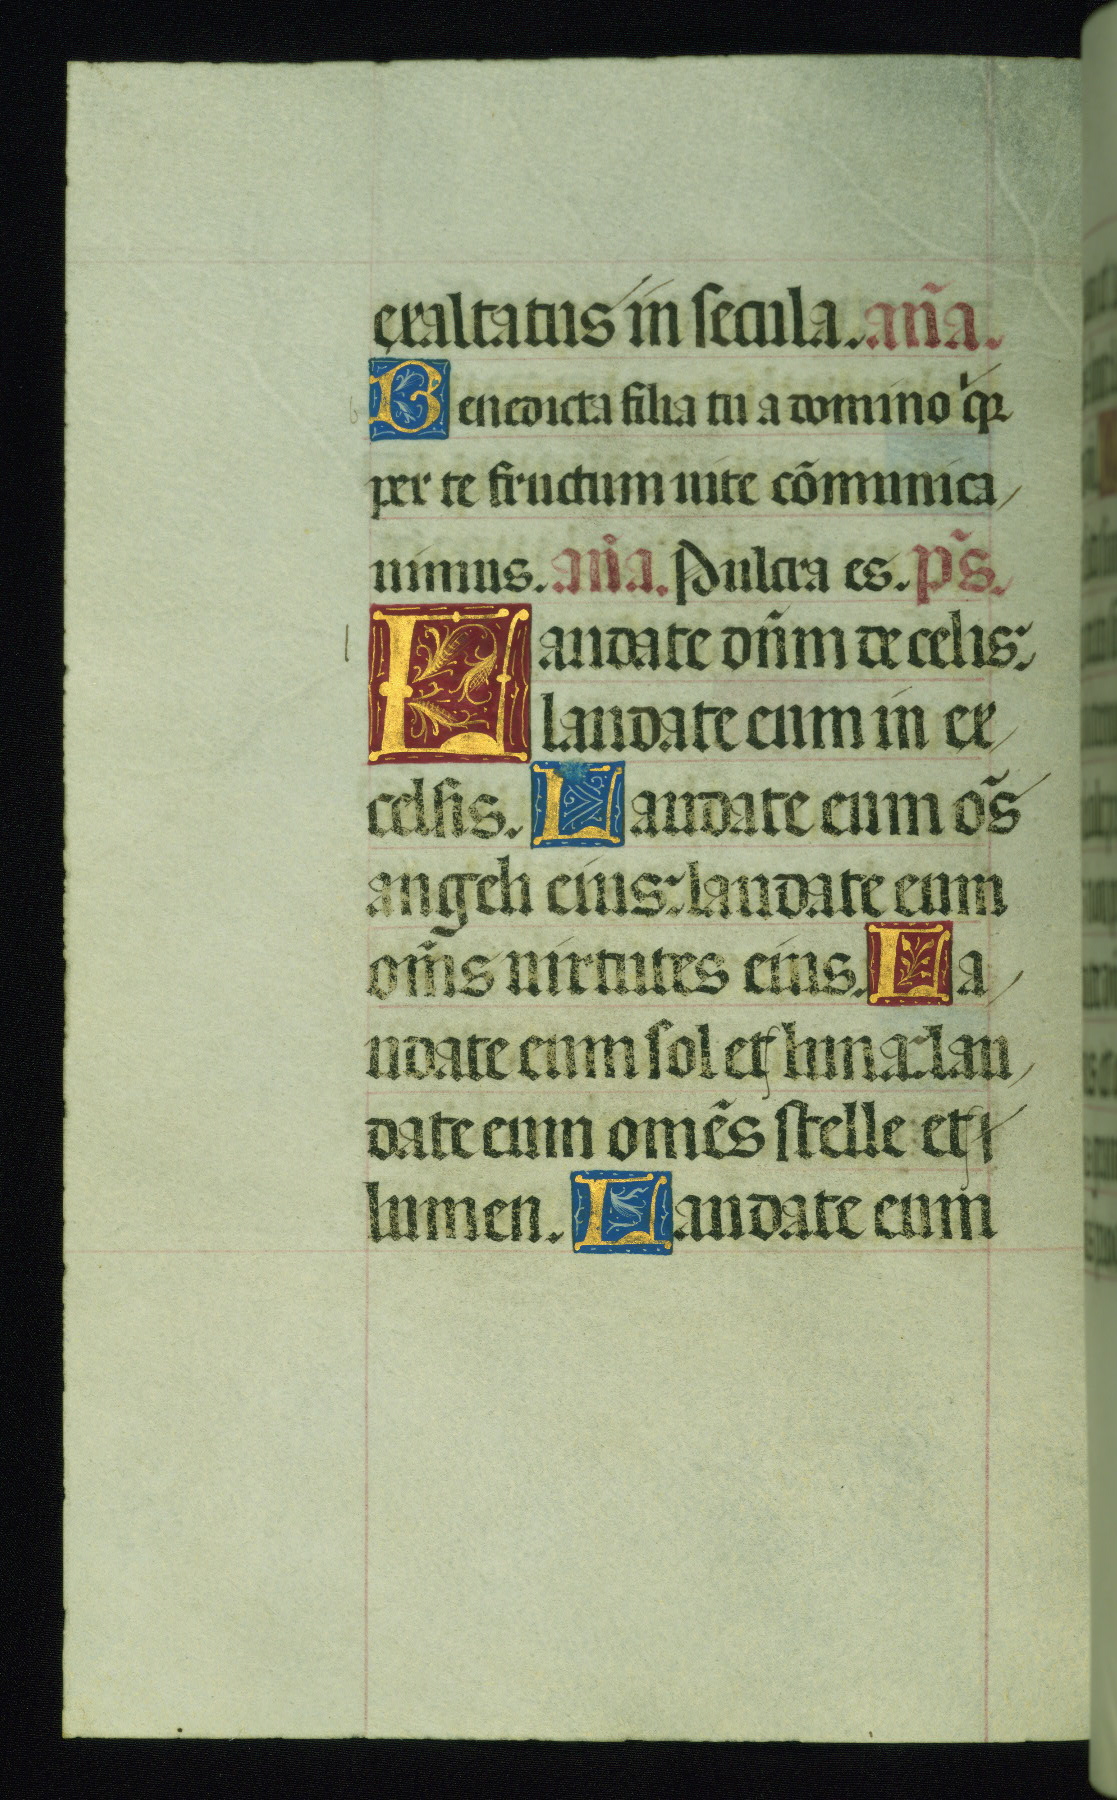 exaltatus in secula. añã.
Benedicta filia tu a domino qr
per te fructum uite cõmunica
uimus. añã. Pulcra es. ps̃.
Laudate dñm de celis:
laudate eum in ex
celsis. Laudate eum oẽs
angeli eius: laudate eum
om̃s uirtutes eius. La
udate eum sol et luna: lau
date eum omẽs stelle et
lumen. Laudate eum